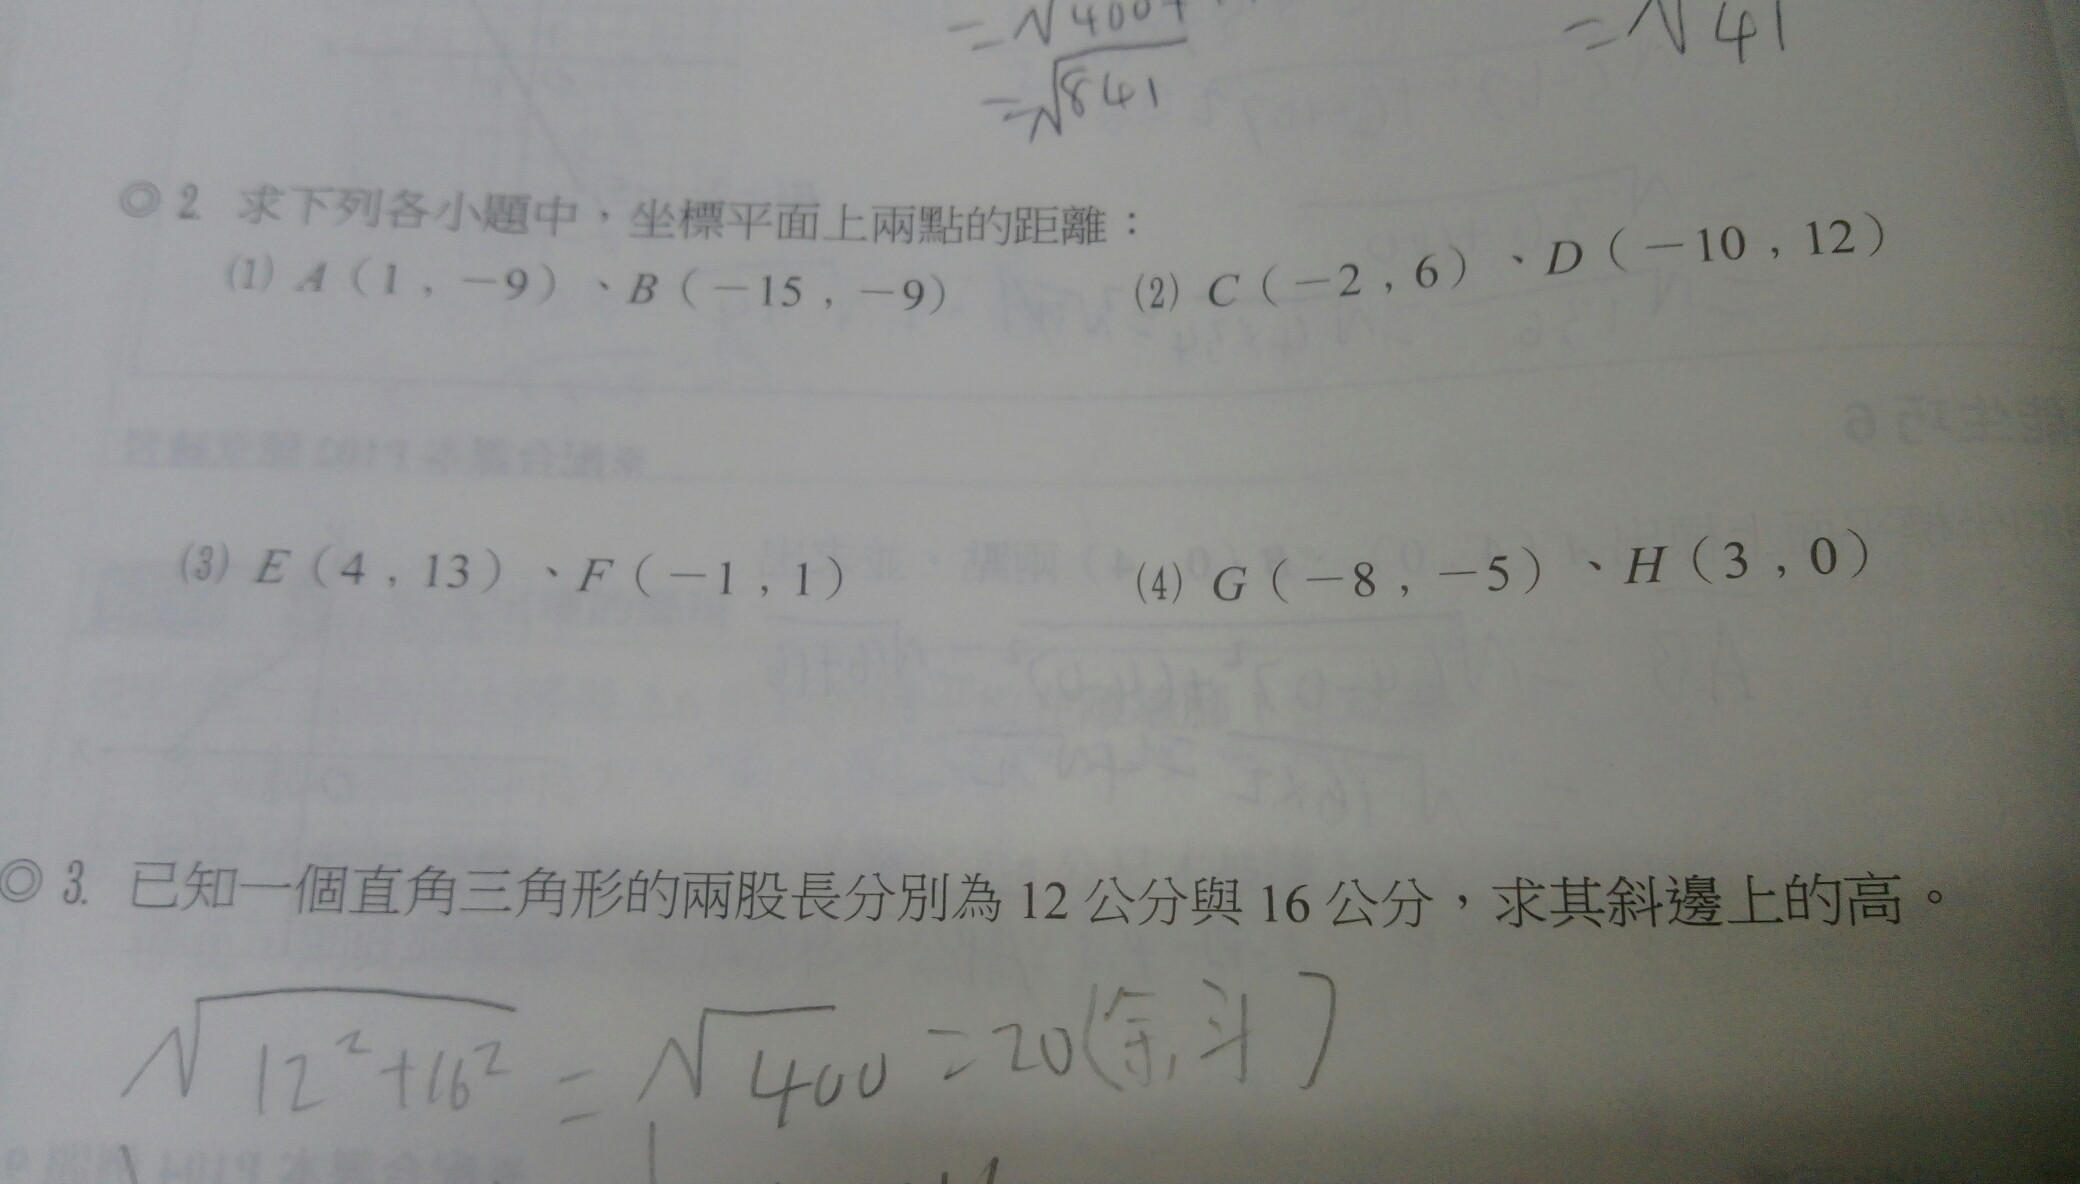 =√400+
=√841
=√41
◎2. 求下列各小題中，坐標平面上兩點的距離：
(1) A（1，−9）、B（−15，−9）
(2) C（−2，6）、D（−10，12）
(3) E（4，13）、F（−1，1）
(4) G（−8，−5）、H（3，0）
◎3. 已知一個直角三角形的兩股長分別為 12 公分與 16 公分，求其斜邊上的高。
√12²+16² = √400 = 20(斜)